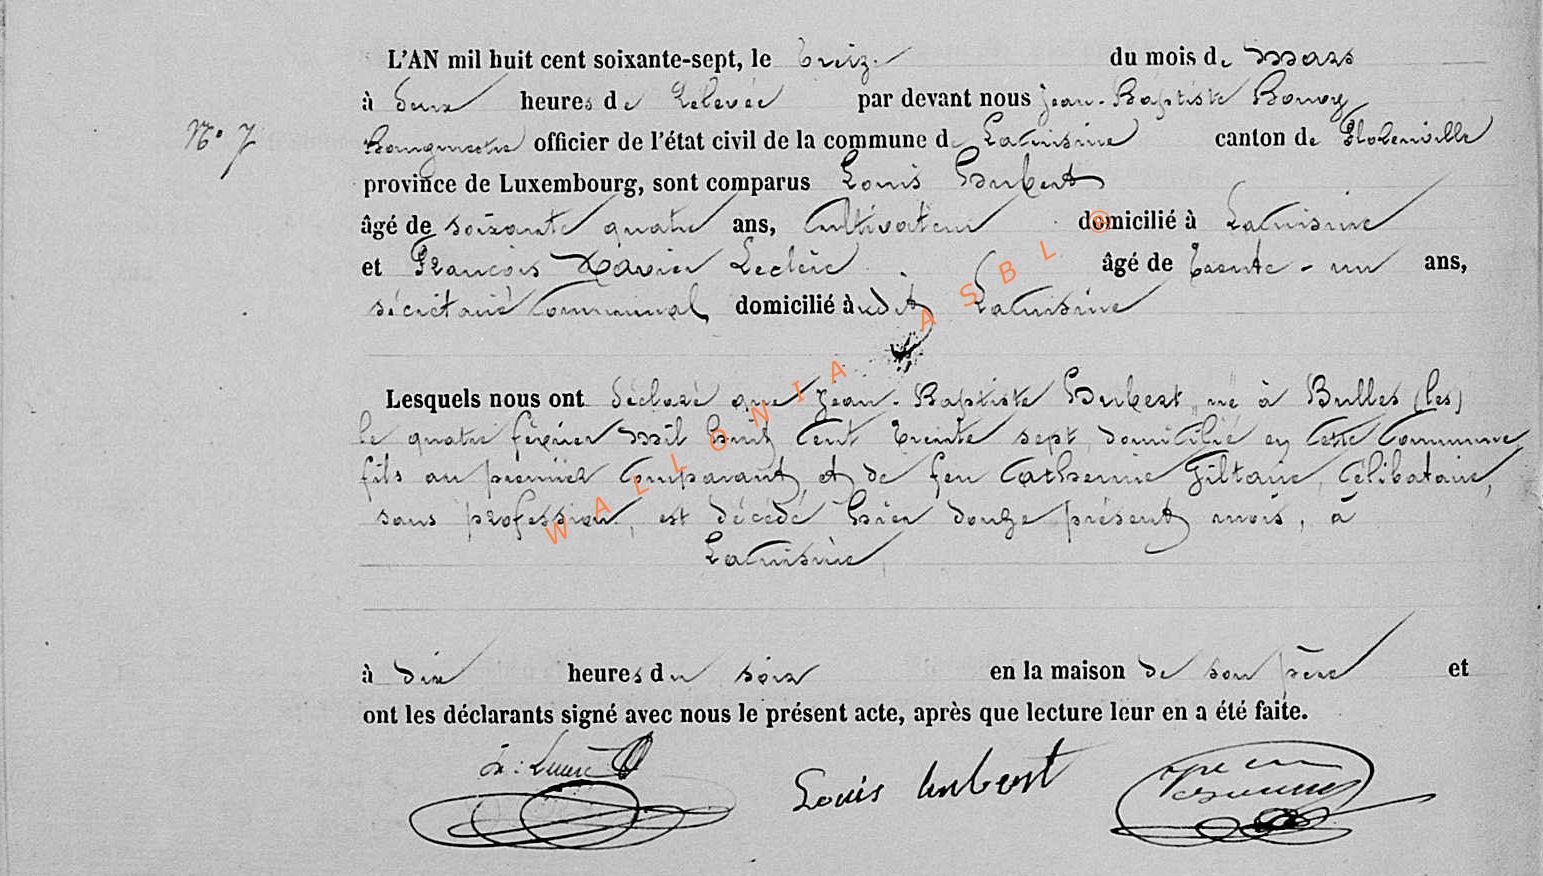 L'AN mil huit cent soixante-sept, le treize du mois de Mars
à deux heures de relevée par devant nous Jean-Baptiste
N° 7
Bourgmestre officier de l'état civil de la commune de Lacuisine canton de Florenville
province de Luxembourg, sont comparus Louis Hubert
âgé de soixante quatre ans, Cultivateur domicilié à Lacuisine
et François Xavier Leclère âgé de trente-un ans,
sécrétaire Communal, domicilié àudit Lacuisine
Lesquels nous ont déclaré que Jean-Baptiste Hubert, né à Bulles (les)
le quatre février Mil huit Cent trente sept, domicilié en Cette Commune,
fils au premier Comparant et de feu Catherine Giltaire, Célibataire,
sans profession, est décédé hier douze présent mois, à
Lacuisine,
à dix heures du soir en la maison de son père et
ont les déclarants signé avec nous le présent acte, après que lecture leur en a été faite.
Louis hubert
WALLONIA ASBL ©